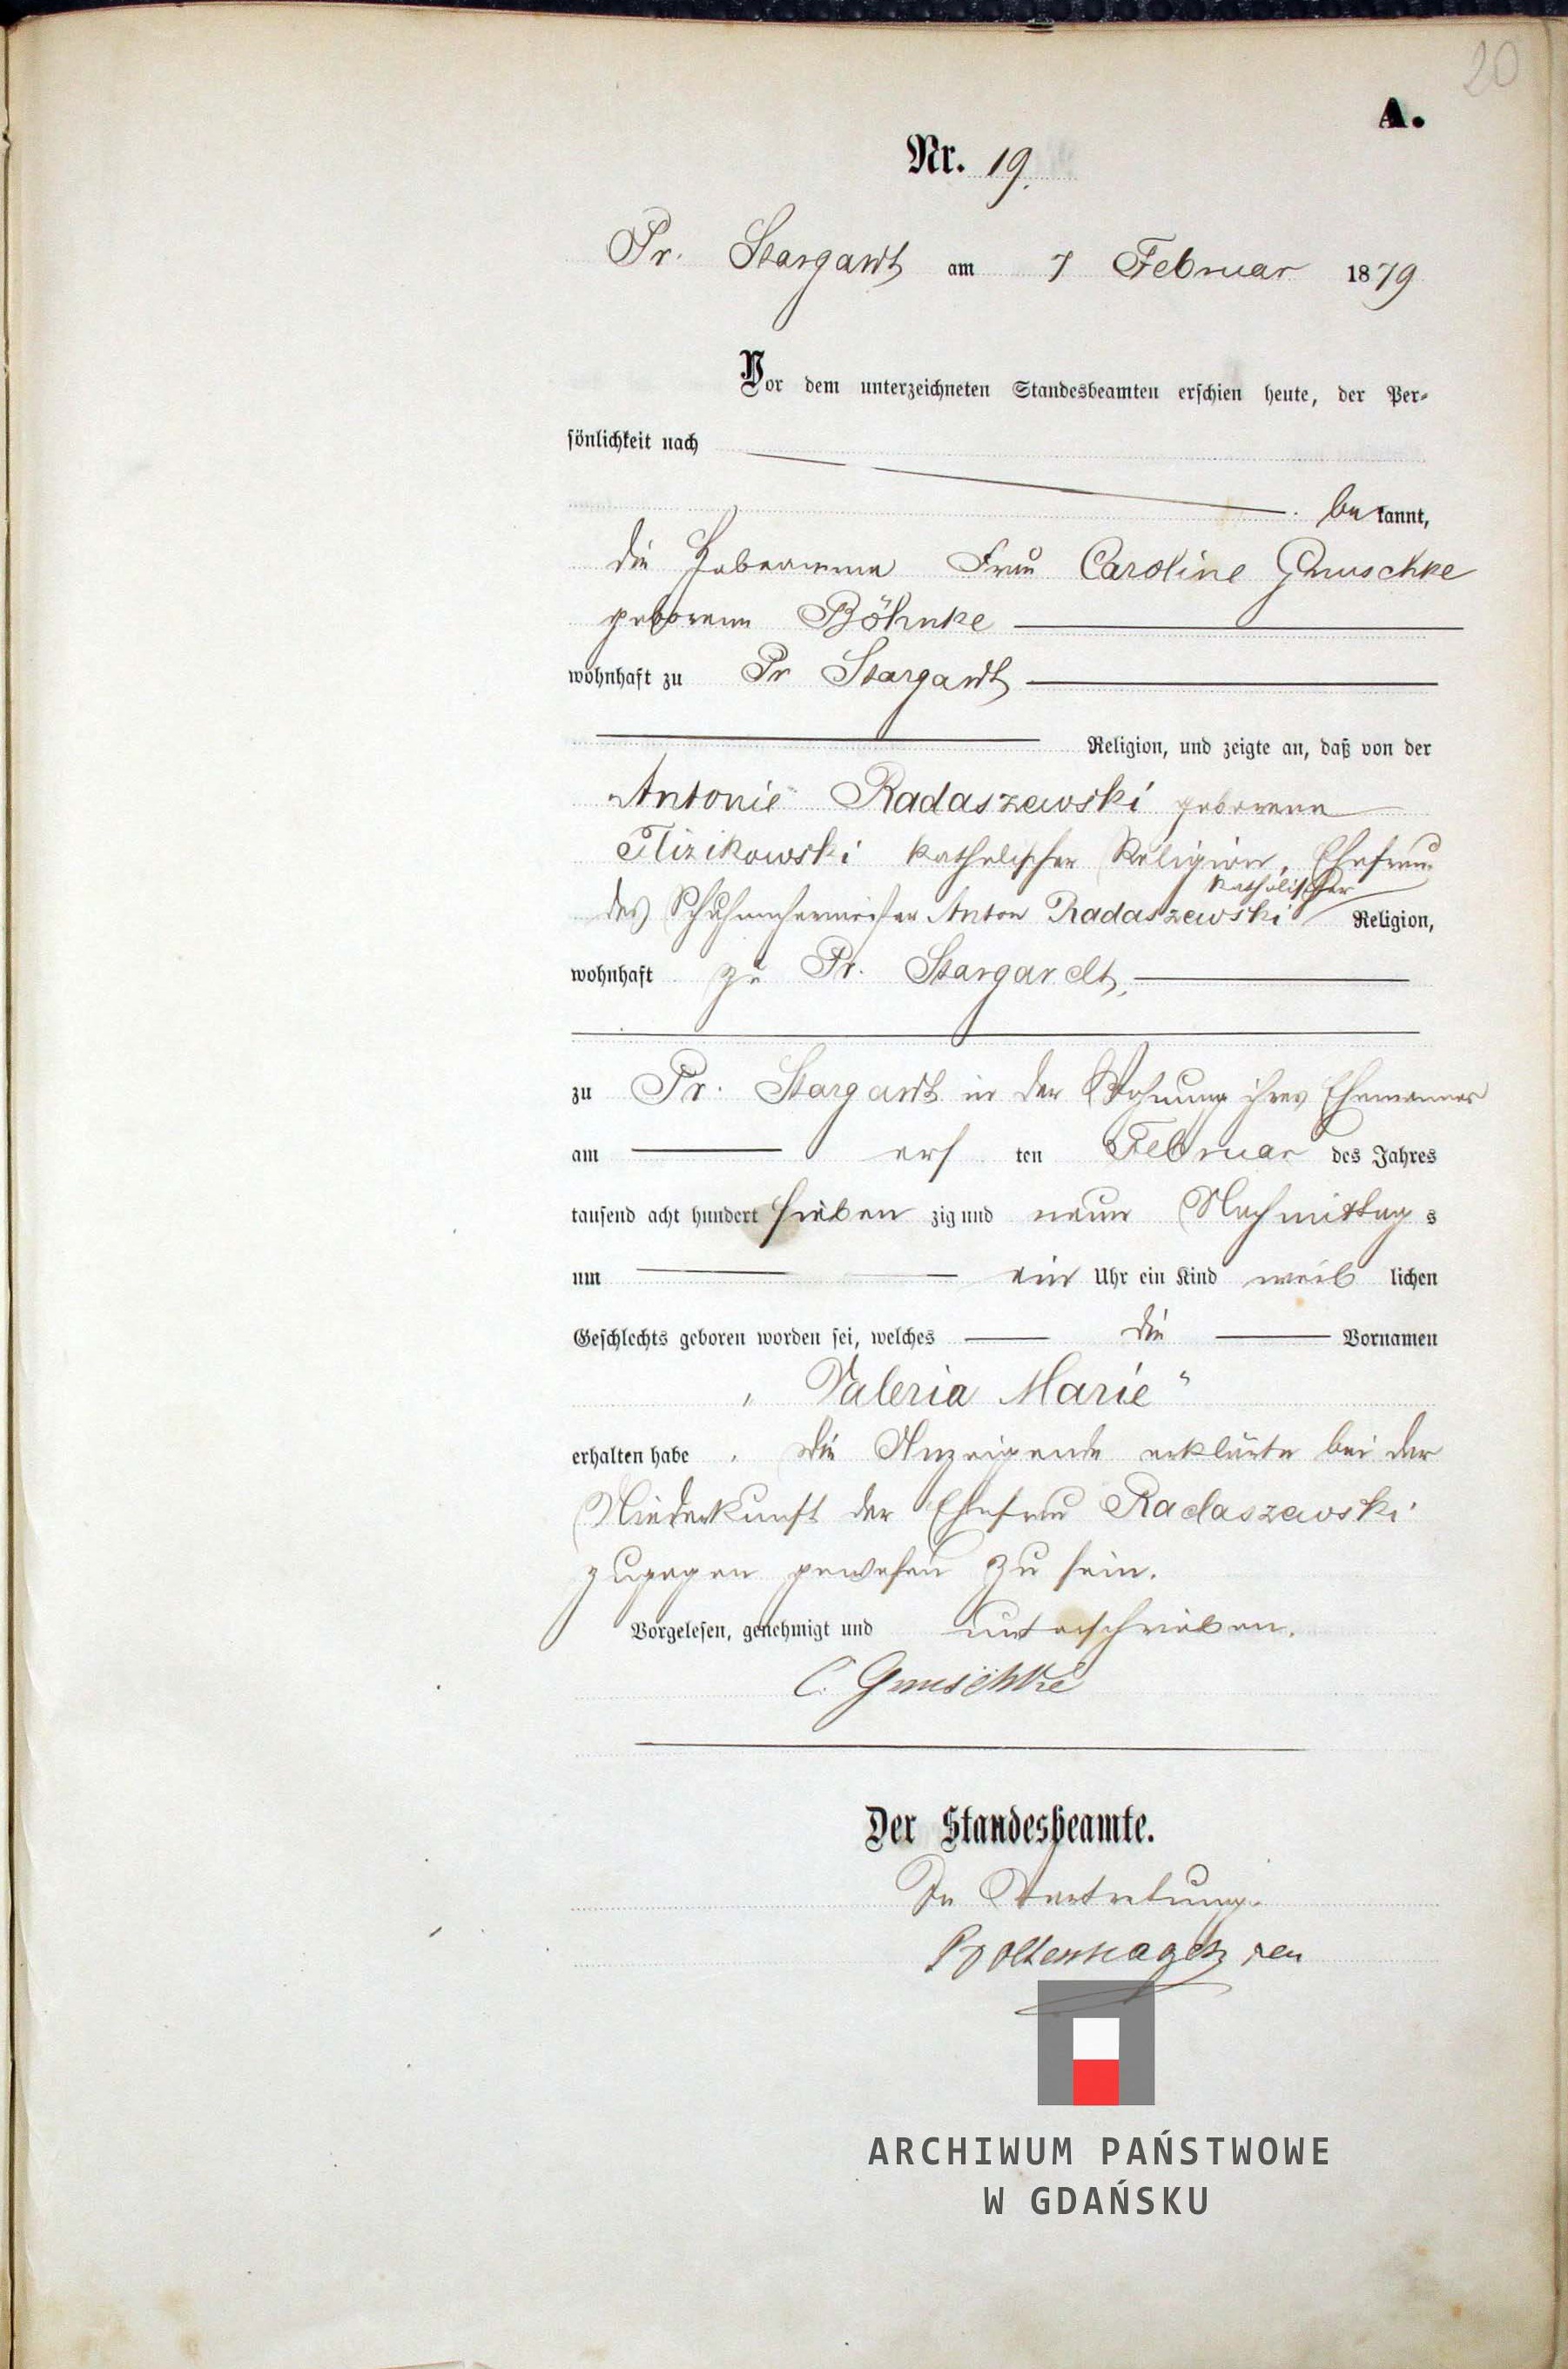 20
A.
Nr. 19.
Pr. Stargardt am 7 Februar 1879
Vor dem unterzeichneten Standesbeamten erschien heute, der Per-
sönlichkeit nach
bekannt,
die Hebeamme Frau Caroline Gnuschke
geborene Böhnke
wohnhaft zu Pr Stargardt
Religion, und zeigte an, daß von der
Antonie Radaszewski geborene
Flizikowski katholischer Religion, Ehefrau
katholischer
des Schuhmachermeister Anton Radaszewski Religion,
wohnhaft zu Pr. Stargardt,
zu Pr. Stargardt in der Wohnung ihres Ehemannes
am ersten Februar des Jahres
tausend acht hundert siebenzig und neun Nachmittags
um ein Uhr ein Kind weiblichen
Geschlechts geboren worden sei, welches die Vornamen
„Valeria Marie“
erhalten habe. Die Anzeigende erklärte bei der
Niederkunft der Ehefrau Radaszewski
zugegen gewesen zu sein.
Vorgelesen, genehmigt und unterschrieben.
C. Gnuschke
Der Standesbeamte.
In Vertretung.
ARCHIWUM PAŃSTWOWE
W GDAŃSKU